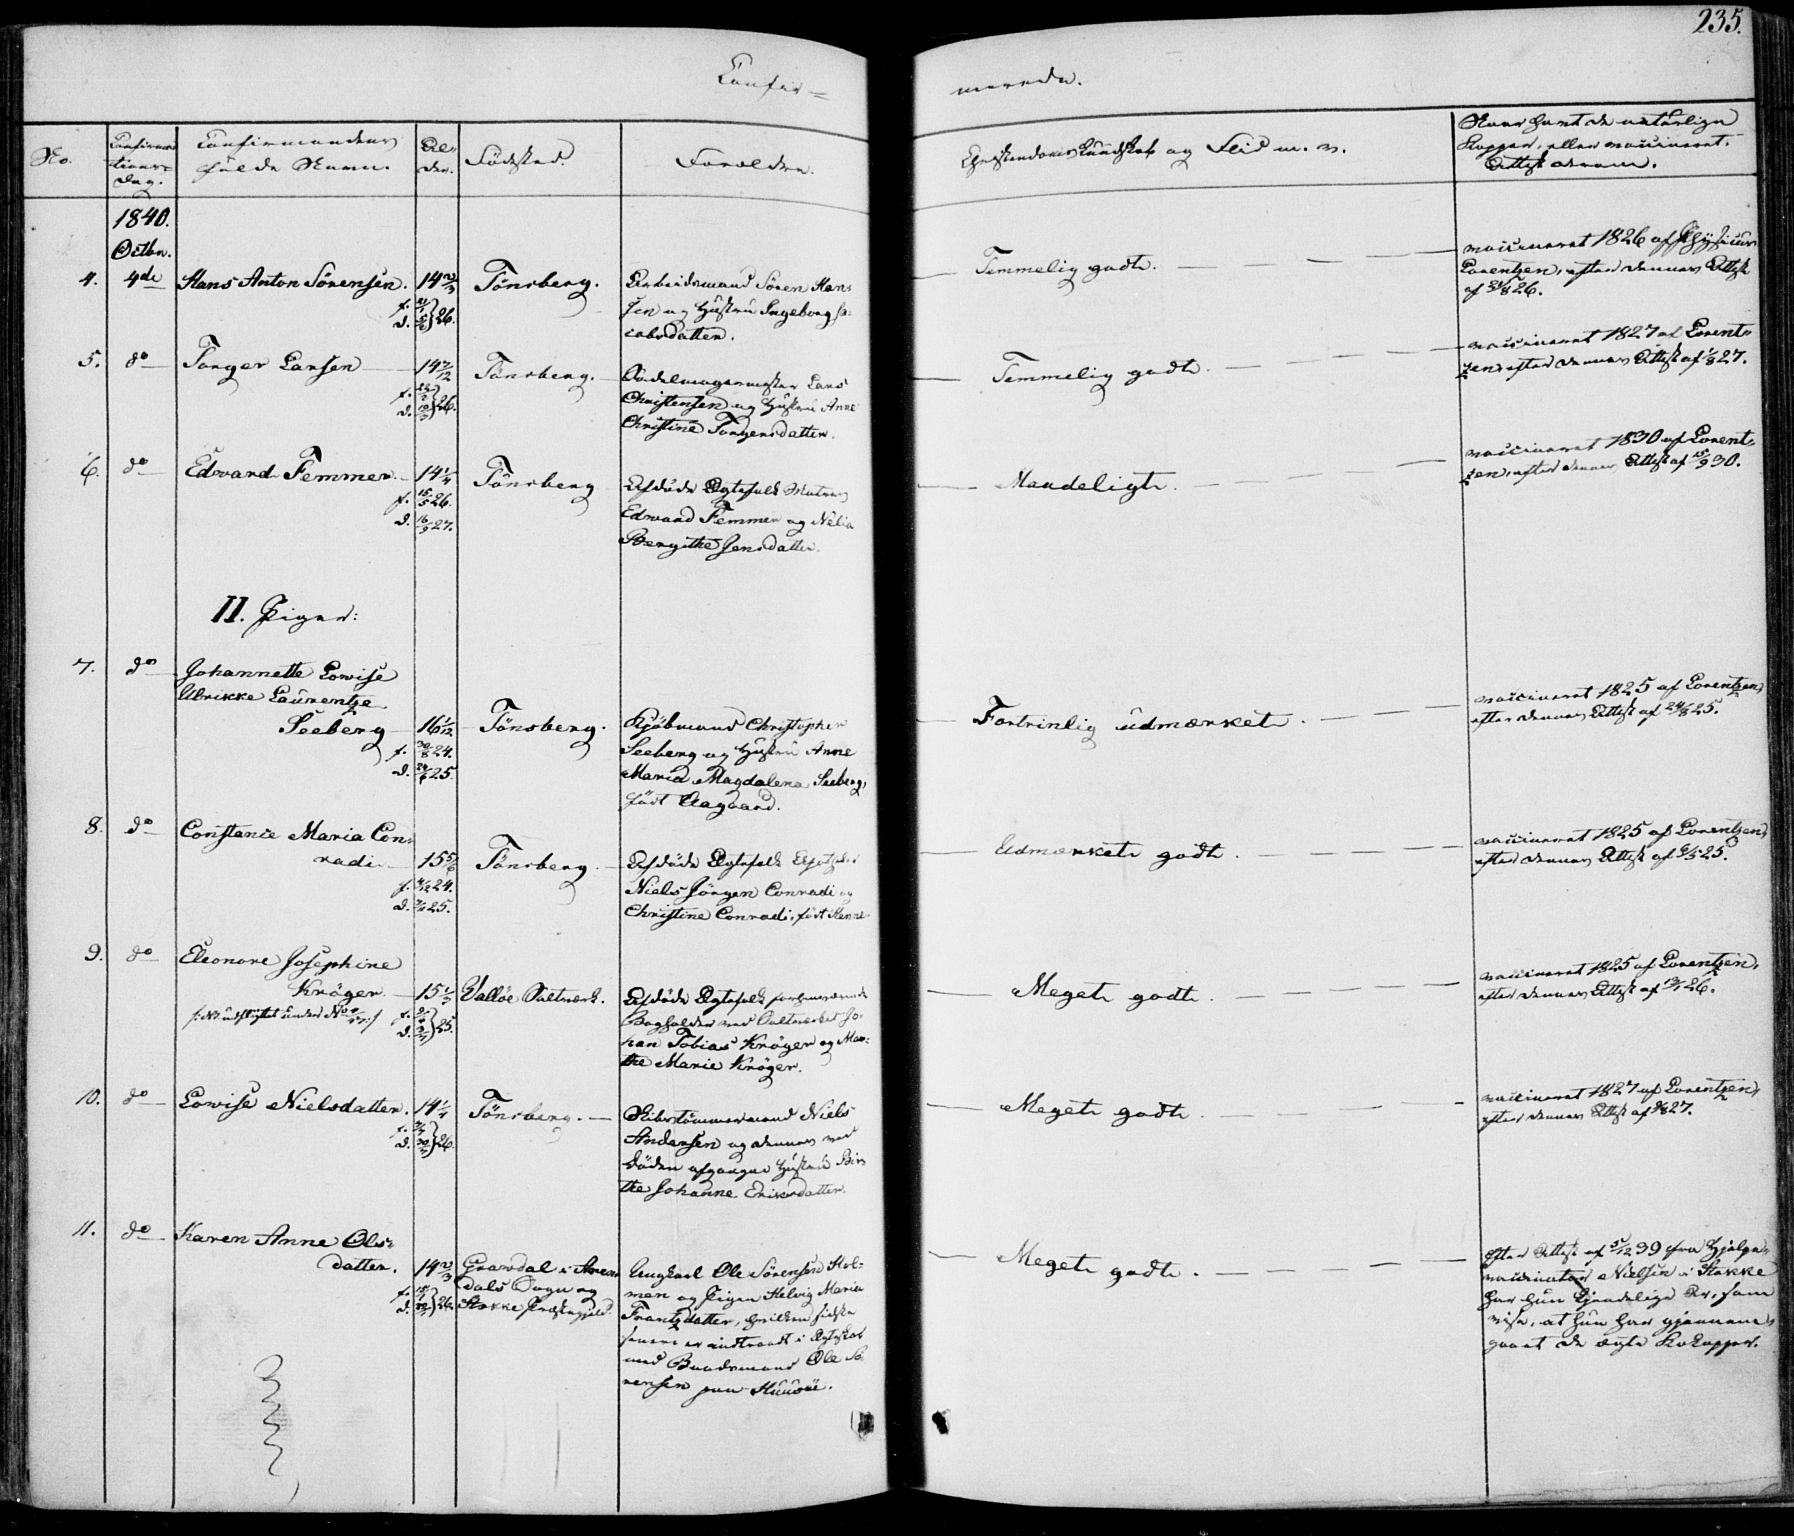 235.
Confir=
merede.
No.
Confirma
tions-
Dag.
Confirmandens
fulde Navn.
Al-
der.
Födsted.
Forældre.
Christendoms Kundskab og Flid m. v.
Naar havt de naturlige
Kopper, eller vaccineret.
Attest derom.
1840.
Octbr.
4. 4de Hans Anton Sörensen. 14 2/3 Tönsberg.
26.
Arbeidsmand Sören Han-
sen og Hustru Ingeborg Ja-
cobsdatter.
Temmelig godt.
vaccineret 1826 af Physicus
Lorentzen, efter dennes Attest
af 26.
5. do Torger Larsen 14 7/12 Tönsberg.
26.
Sadelmagermester Lars
Christensen og Hustru Anne
Christine Torgersdatter.
Temmelig godt.
vaccineret 1827 af Lorent-
zen, efter dennes Attest af 1/8 27.
6. do Edvard Femmer. 14 1/4 Tönsberg
f. 26.
d. 16/9 27.
Afdöde Ægtefolk Matros
Edvard Femmer og Nelia
Bergithe Jensdatter.
Maadeligt.
vaccineret 1830 af Lorent-
zen, efter dennes Attest af 15/9 30.
II. Piger:
7. do Johannette Lovise
Ulrikke Laurentze
Seeberg 16 1/12 Tönsberg.
f. 30/8 24.
d. 25.
Kjöbmand Christopher
Seeberg og Hustru Anne
Maria Magdalena Seeberg,
födt Aagaard.
Fortrinlig udmærket.
vaccineret 1825 af Lorentzen,
efter dennes Attest af 24/8 25.
8. do Constance Maria Con-
radi 15 5/6 Tönsberg
f. 24.
d. 25.
Afdöde Ægtefolk
Niels Jörgen Conradi og
Christine Conradi, födt
Udmærket godt.
vaccineret 1825 af Lorentzen,
efter dennes Attest af 6/5 25.
9. do Eleonore Josephine
Kröger. 15 1/2 Valløe Saltværk.
25.
Afdöde Ægtefolk forhenværende
Bogholder ved Saltværket Jo-
han Tobias Kröger og Mar-
the Marie Kröger.
Meget godt.
vaccineret 1825 af Lorentzen,
efter dennes Attest af 26.
10. do Lovise Nielsdatter. 14 1/4 Tönsberg.
26.
Skibstömmermand Niels
Andersen og dennes ved
Döden afgangne Hustru Bir-
the Johanne Eriksdatter.
Meget godt.
vaccineret 1827 af Lorentzen,
efter dennes Attest af 27.
11. do Karen Anne Ols-
datter. 14 2/3 Grawdal i Aren-
dals Sogn og
Stokke Præstegjeld.
26.
Ungkarl Ole Sörensen Hol-
men og Pigen Helvig Maria
Frantzdatter, hvilken sidste
senere er indtraadt i Ægteskab
med Baadsmand Ole Sö-
rensen paa Huusöe.
Meget godt.
Efter Attest af 5/12 39 fra Hjelpe-
vaccinatör Nielsen i Stokke
har hun kjendelige Ar, som
vise, at hun har gjennem-
gaaet de ægte Kokopper.